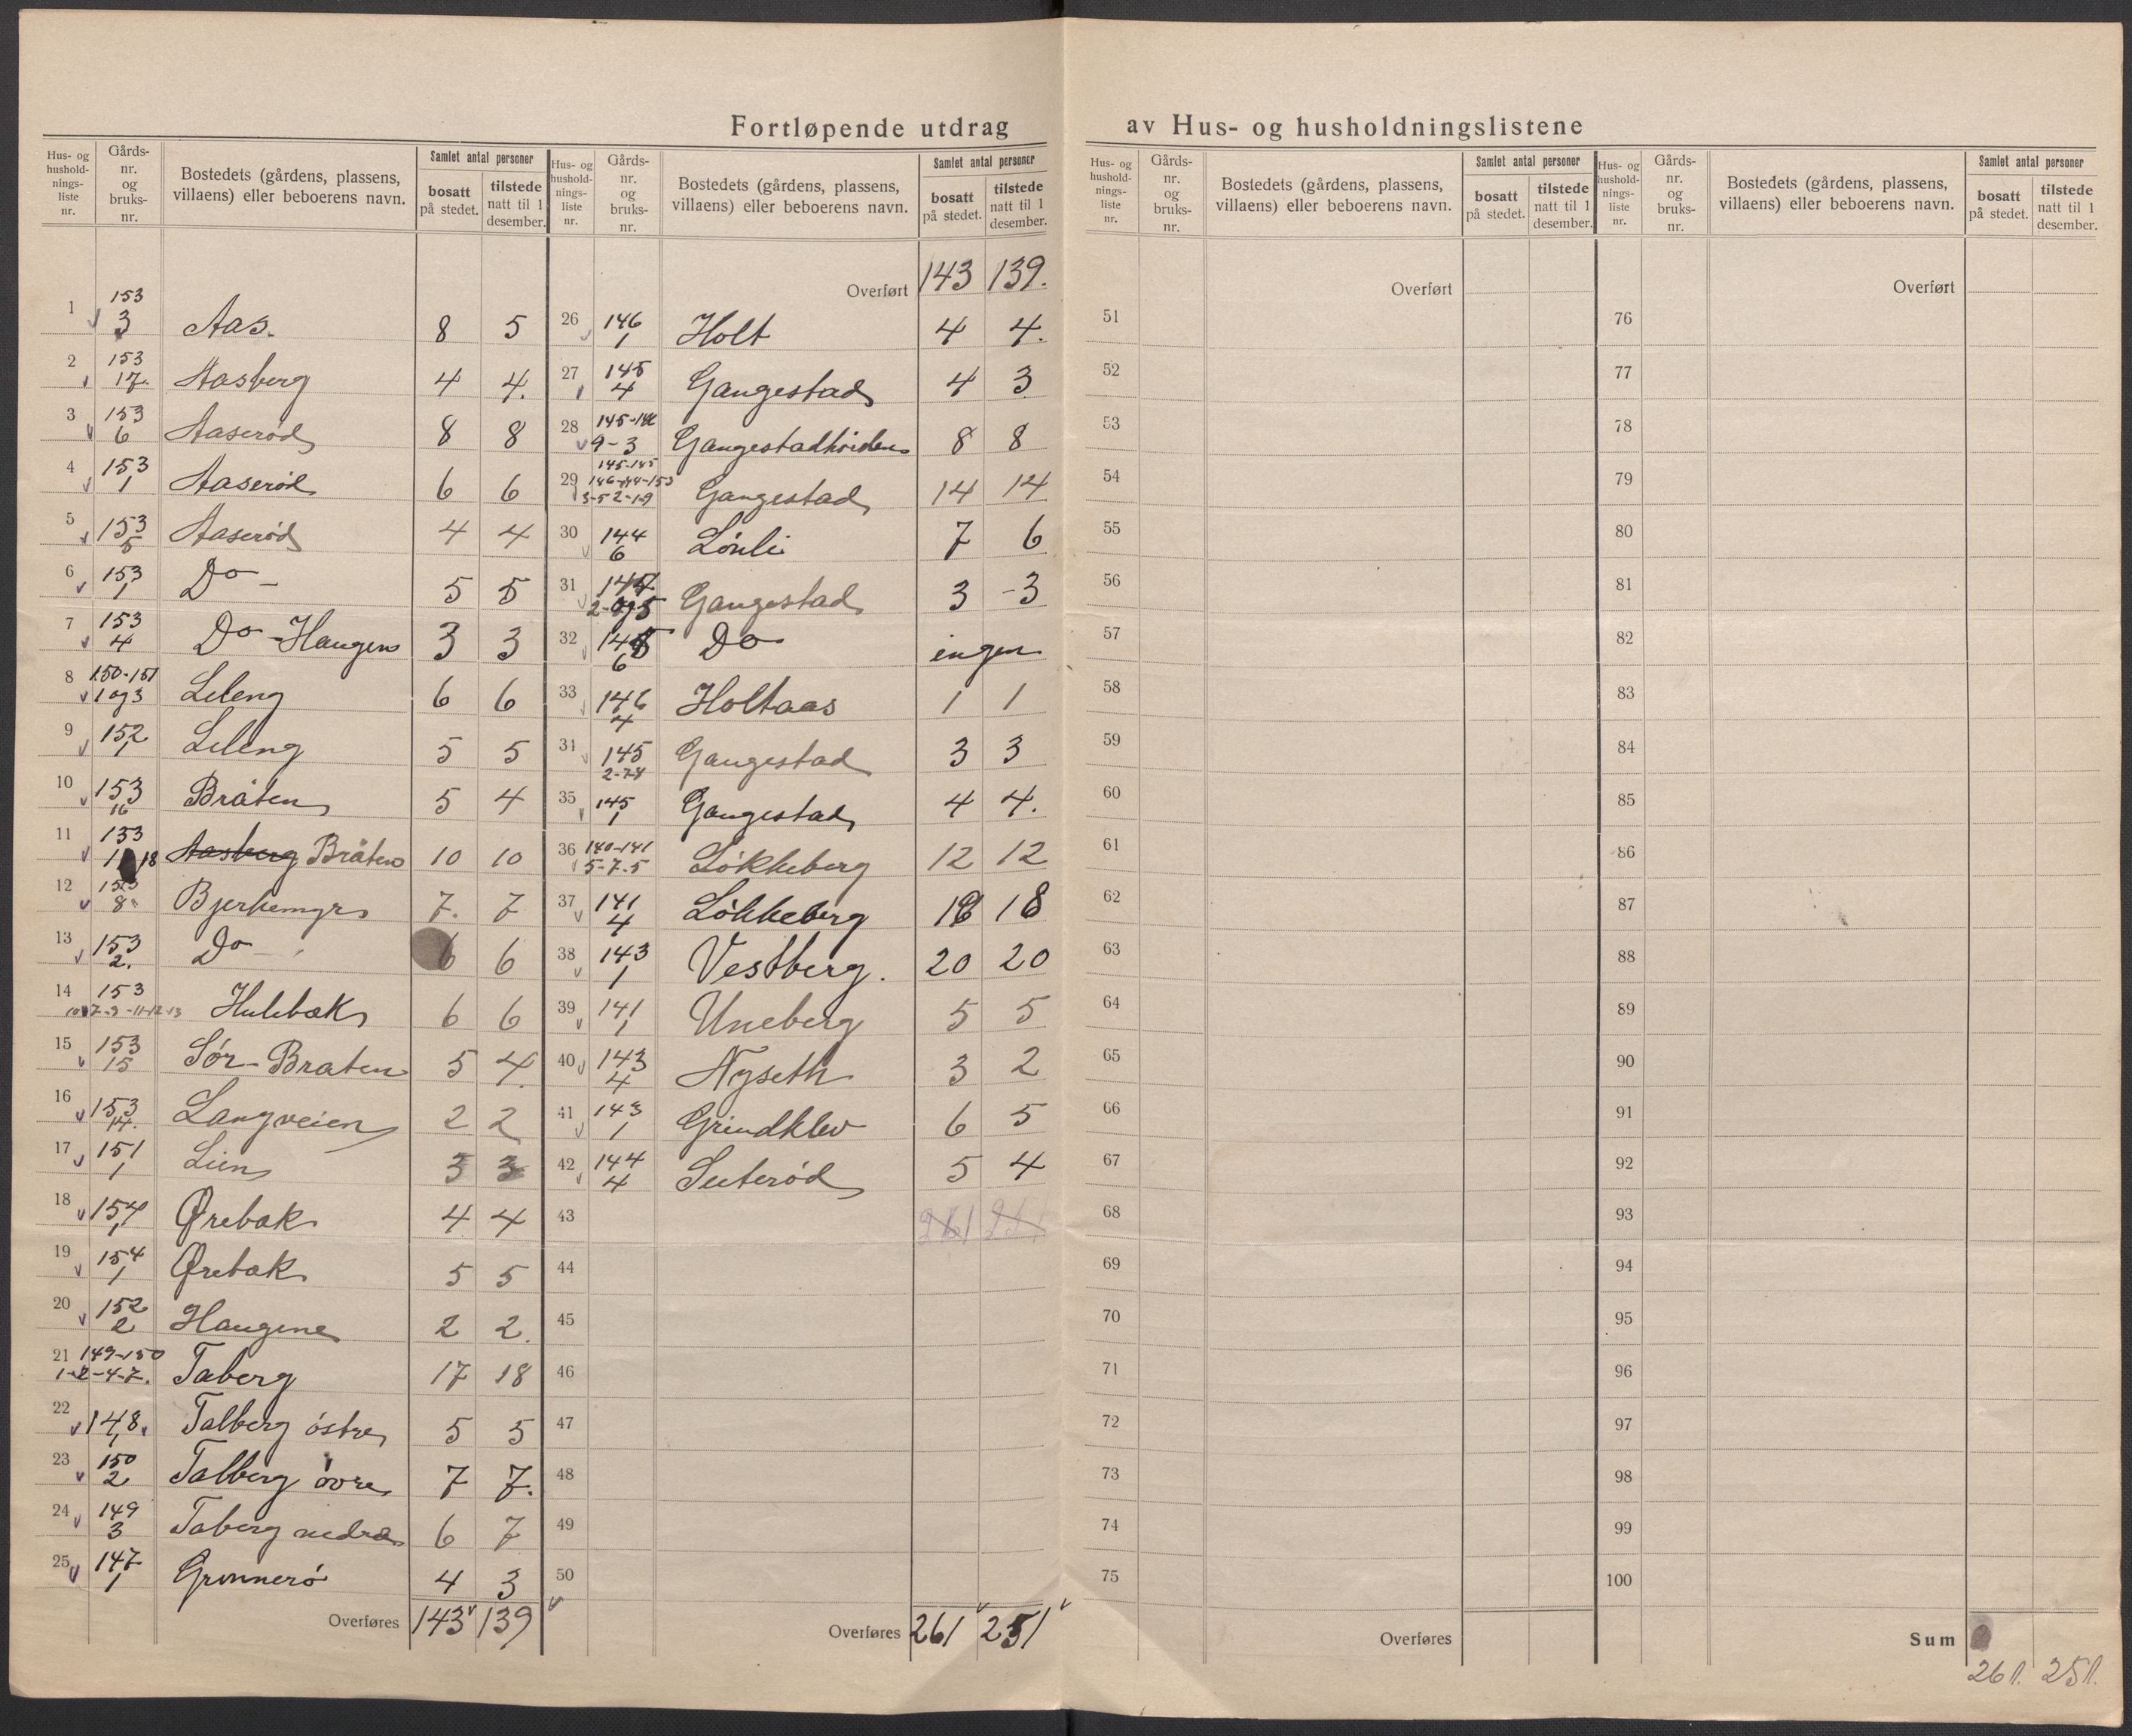 Fortløpende utdrag av Hus- og husholdningslistene
Hus- og hushold- nings- liste nr.
Gårds- nr. og bruks- nr.
Bostedets (gårdens, plassens, villaens) eller beboerens navn.
Samlet antal personer
bosatt på stedet.
tilstede natt til 1 desember.
1 153 3 Aas. 8 5
2 153 17. Aasberg 4 4.
3 153 6 Aaserød 8 8
4 153 1 Aaserød 6 6
5 153 5 Aaserød 4 4
6 153 1 Do - 5 5
7 153 4 Do - Haugen 3 3
8 150-151 1 og 3 Leleng 6 6
9 152 1 Leleng 5 5
10 153 16 Bråten 5 4
11 153 18 Aasberg Bråten 10 10
12 153 8 Bjerkemyr 7. 7
13 153 2. Do - 6 6
14 153 Hulebak 6 6
15 153 15 Sør-Braten 5 4.
16 153 14. Langveien 2 2
17 151 1 Lien 3 3
18 154 1 Ørebak 4 4
19 154 1 Ørebak 5 5
20 152 2 Haugene 2 2.
21 149-150 1-2-4-7. Taberg 17 18
22 148. 1 Talberg östre 5 5
23 150 2 Talberg øvre 7 7.
24 149 3 Taberg nedre 6 7
25 147 1 Grønnerö 4 3
Overføres 143 139
Hus- og hushold- nings- liste nr.
Gårds- nr. og bruks- nr.
Bostedets (gårdens, plassens, villaens) eller beboerens navn.
Samlet antal personer
bosatt på stedet.
tilstede natt til 1 desember.
Overført 143 139.
26 146 1 Holt 4 4.
27 145 4 Gangestad 4 3
28 145-146 9-3 Gangestadhøiden 8 8
29 145-145 146-144-153 3-5 2-1-9 Gangestad 14 14
30 144 6 Lónli 7 6
31 2-og 5 Gangestad 3 -3
32 145 6 Do ingen
33 146 4 Holtaas 1 1
34 145 2-7-8 Gangestad 3 3
35 145 1 Gangestad 4 4.
36 140-141 5-7-5 Lökkeberg 12 12
37 141 4 Lökkeberg 18 18
38 143 1 Vestberg. 20 20
39 141 1 Uneberg 5 5
40 143 4 Nyseth 3 2
41 143 1 Grindklev 6 5
42 144 4 Seterød 5 4
43 261 251
44
45
46
47
48
49
50
Overføres 261 251
Hus- og hushold- nings- liste nr.
Gårds- nr. og bruks- nr.
Bostedets (gårdens, plassens, villaens) eller beboerens navn.
Samlet antal personer
bosatt på stedet.
tilstede natt til 1 desember.
Overført
51
52
53
54
55
56
57
58
59
60
61
62
63
64
65
66
67
68
69
70
71
72
73
74
75
Overføres
Hus- og hushold- nings- liste nr.
Gårds- nr. og bruks- nr.
Bostedets (gårdens, plassens, villaens) eller beboerens navn.
Samlet antal personer
bosatt på stedet.
tilstede natt til 1 desember.
Overført
76
77
78
79
80
81
82
83
84
85
86
87
88
89
90
91
92
93
94
95
96
97
98
99
100
Sum
261. 251.